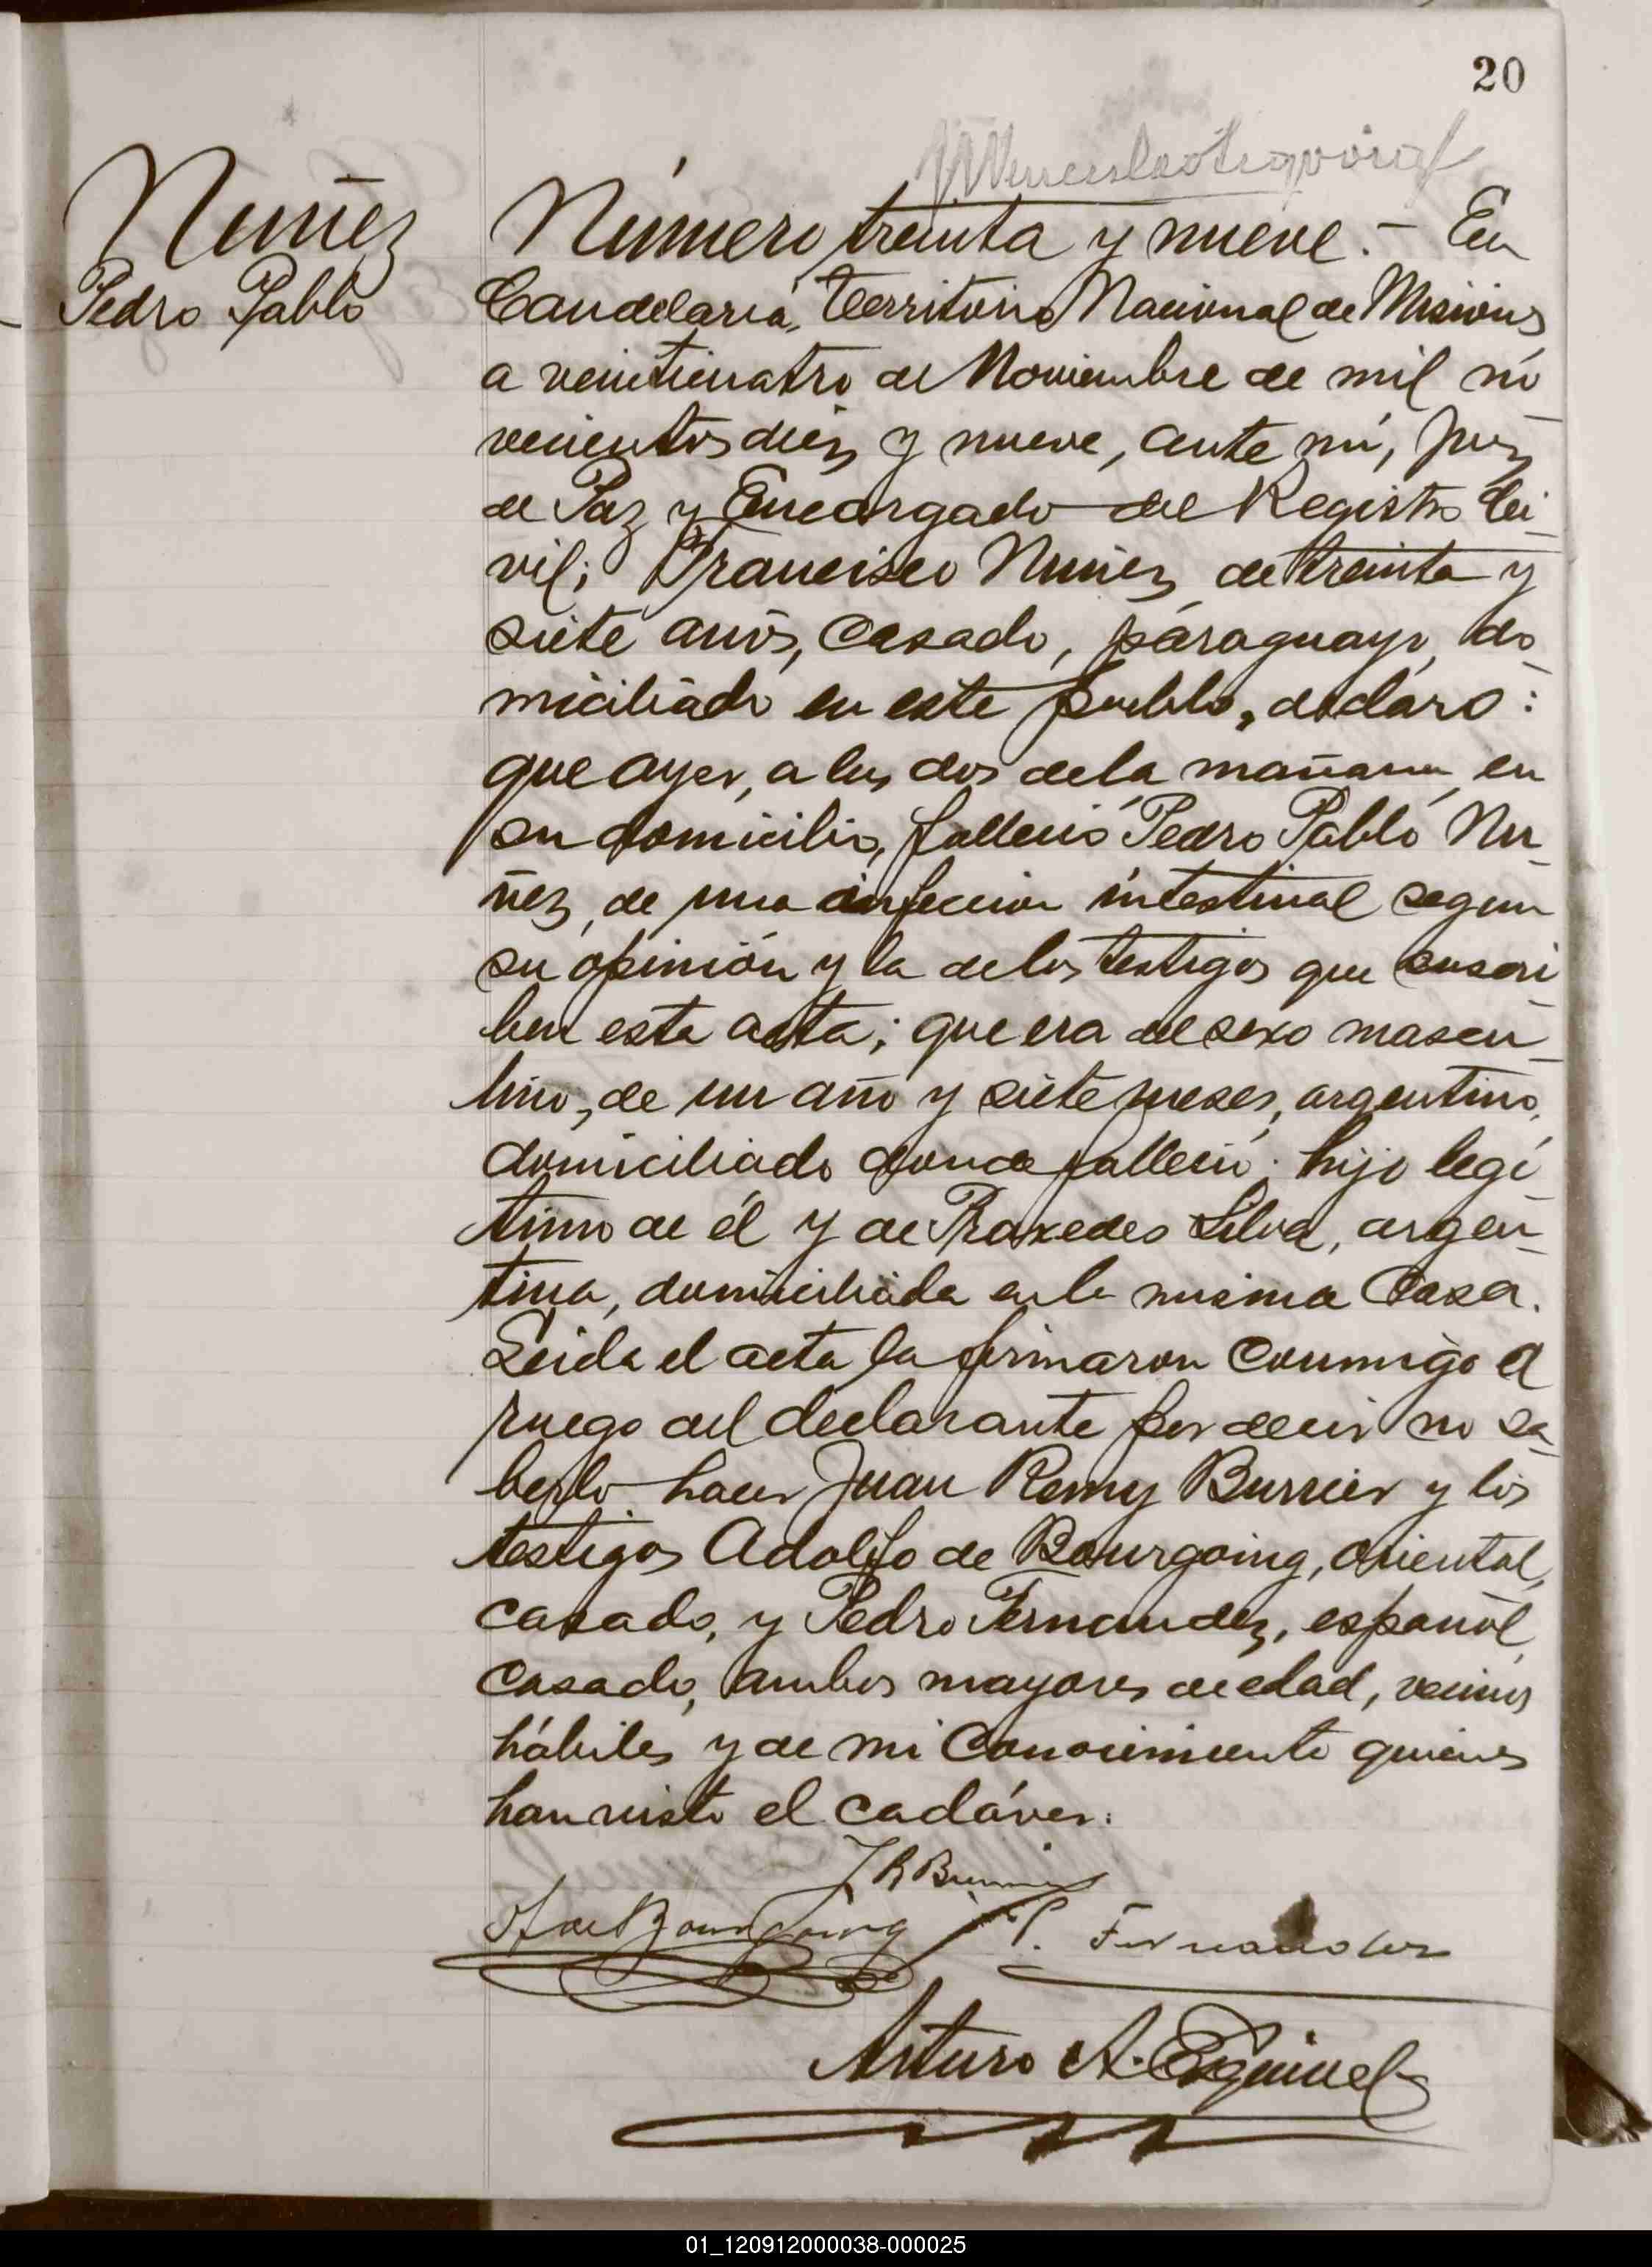 20
Nuñez
Pedro Pablo
Número treinta y nueve.- En
Candelaria, Territorio Nacional de Misiones
a veinticuatro de Noviembre de mil no
vecientos diez y nueve, ante mí, Juez
de Paz y Encargado del Registro Ci-
vil; Francisco Nuñez, de treinta y
siete años, casado, paraguayo, do-
miciliado en este pueblo, declaró:
que ayer, a las dos de la mañana en
su domicilio, falleció Pedro Pablo Nu-
ñez, de una infeccion intestinal segun
su opinión y la de los testigos que suscri-
ben esta acta; que era de sexo mascu-
lino, de un año y siete meses, argentino,
domiciliado donde falleció: hijo legí-
timo de él y de Praxedes Silva, argen-
tina, domiciliada en la misma casa.
Leida el acta la firmaron conmigo a
ruego del declarante por decir no sa-
berlo hacer Juan Remy Burrier y los
testigos Adolfo de Bourgoing, oriental,
casado, y Pedro Fernandez, español,
casado, ambos mayores de edad, vecinos
hábiles y de mi conocimiento quienes
han visto el cadáver.
J R Burrier
A de Bourgoing
P. Fernandez
Arturo A. Esquivel
01_120912000038-000025